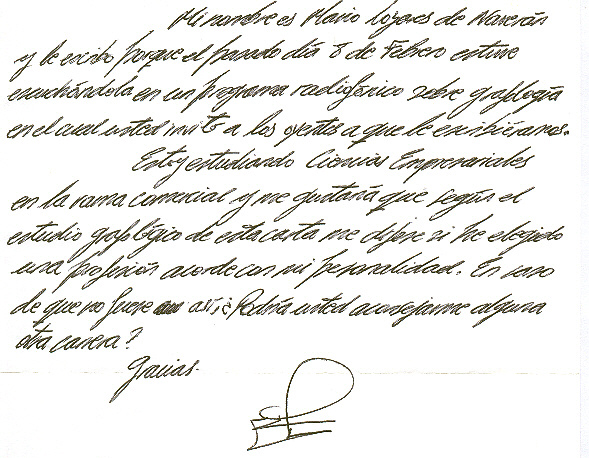 Mi nombre es Mario Logares de Navarás
y le escribo porque el pasado día 8 de Febrero estuve
escuchándola en un programa radiofónico sobre grafología
en el cual usted invitó a los oyentes a que le escribiéramos.
Estoy estudiando Ciencias Empresariales
en la rama comercial y me gustaría que según el
estudio grafológico de esta carta me dijese si he elegido
una profesión acorde con mi personalidad. En caso
de que no fuere así ¿Podría usted aconsejarme alguna
otra carrera?
Gracias.